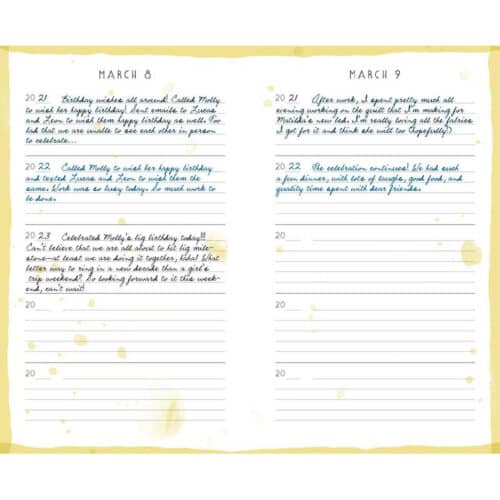 MARCH 8
20 21 Birthday wishes all around! Called Molly
to wish her happy birthday! Sent emails to Lucas
and Leon to wish them happy birthday as well. Too
bad that we are unable to see each other in person
to celebrate...
20 22 Called Molly to wish her happy birthday
and texted Lucas and Leon to wish them the
same. Work was so busy today. So much work to
be done.
20 23 Celebrated Molly's big birthday today!!!
Can't believe that we are all about to hit big mile-
stone-at least we are doing it together, haha! What
better way to ring in a new decade than a girl's
trip weekend? So looking forward to it this week-
end, can't wait!
20
20
MARCH 9
20 21 After work, I spent pretty much all
evening working on the quilt that I'm making for
Matilda's new bed. I'm really loving all the fabrics
I got for it and think she will too (hopefully!)
20 22 The celebration continues! We had such
a fun dinner, with lots of laughs, good food, and
quality time spent with dear friends.
20
20
20